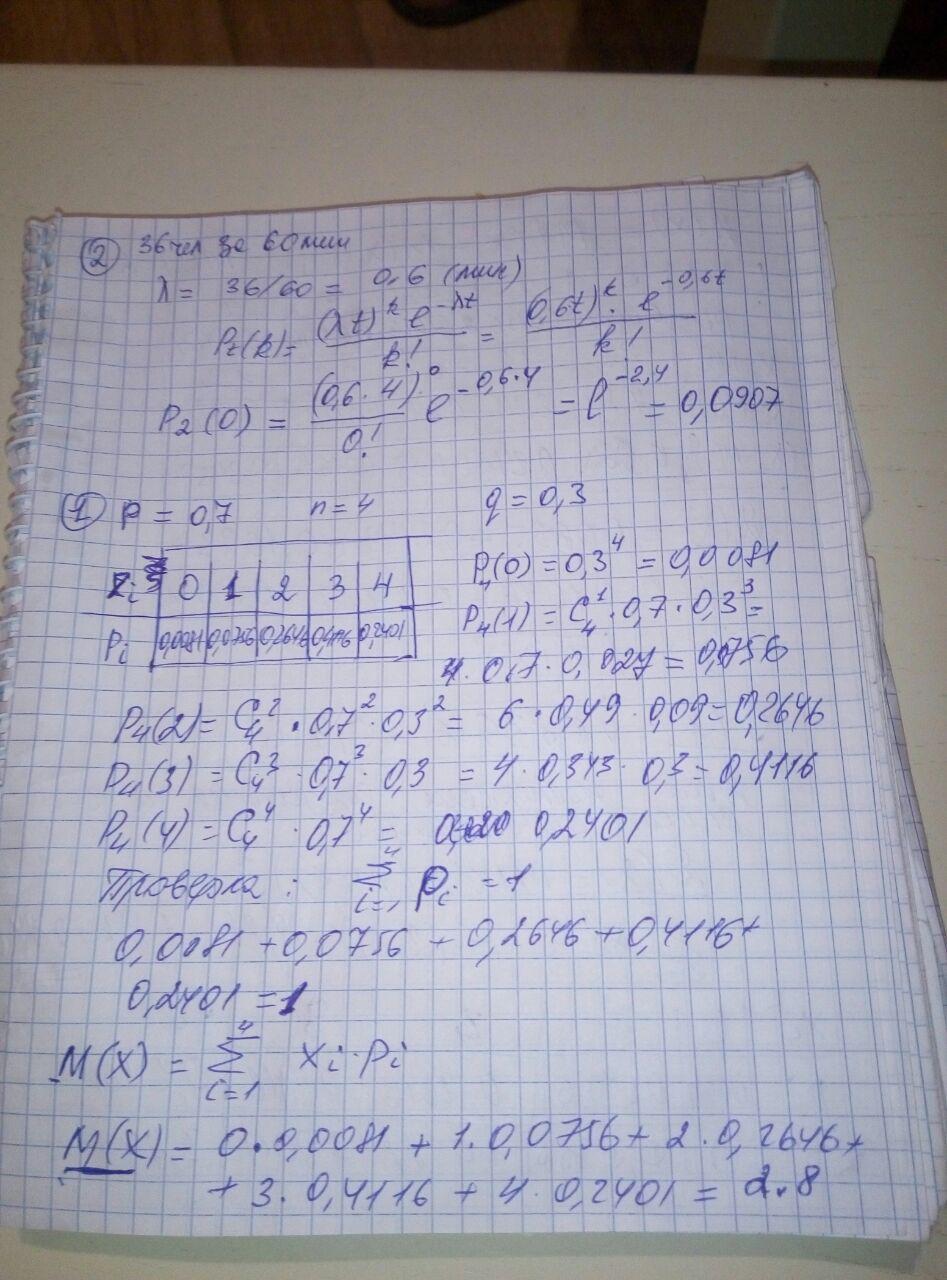 ② 36 чел за 60 мин
λ = 36/60 = 0,6 (мин)
Pt(k) = (λt)^k e^-λt / k! = (0,6t)^k · e^-0,6t / k!
P2(0) = (0,6·4)^0 / 0! e^-0,6·4 = e^-2,4 = 0,0907
① P = 0,7 n = 4 q = 0,3
xi 0 1 2 3 4
Pi 0,0081 0,0756 0,2646 0,4116 0,2401
P4(0) = 0,3^4 = 0,0081
P4(1) = C4^1 · 0,7 · 0,3^3 =
4 · 0,7 · 0,027 = 0,0756
P4(2) = C4^2 · 0,7^2 · 0,3^2 = 6 · 0,49 · 0,09 = 0,2646
P4(3) = C4^3 · 0,7^3 · 0,3 = 4 · 0,343 · 0,3 = 0,4116
P4(4) = C4^4 · 0,7^4 = 0,2401
Проверка : Σ i=1 4 Pi = 1
0,0081 + 0,0756 + 0,2646 + 0,4116 +
0,2401 = 1
M(X) = Σ i=1 4 xi · Pi
M(X) = 0 · 0,0081 + 1 · 0,0756 + 2 · 0,2646 +
+ 3 · 0,4116 + 4 · 0,2401 = 2.8